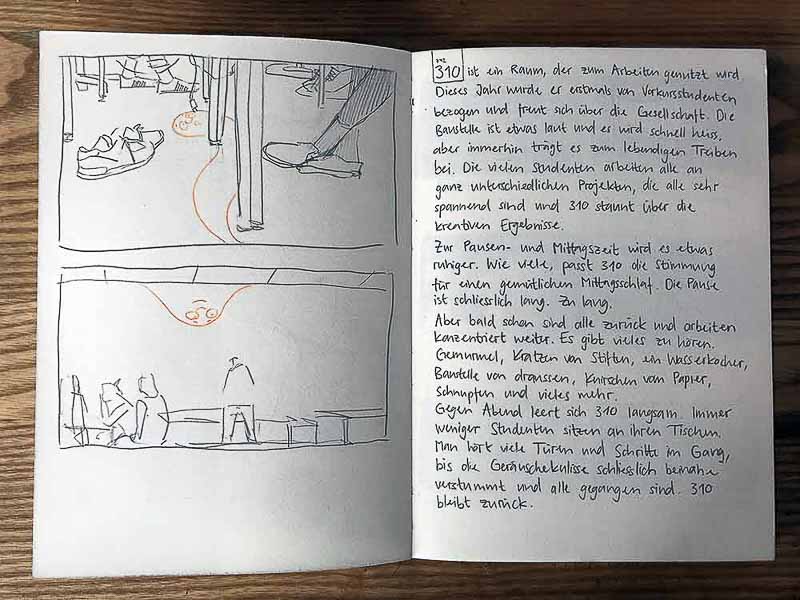 310 ist ein Raum, der zum Arbeiten genutzt wird.
Dieses Jahr wurde er erstmals von Vorkursstudenten
bezogen und freut sich über die Gesellschaft. Die
Baustelle ist etwas laut und es wird schnell heiss,
aber immerhin trägt es zum lebendigen Treiben
bei. Die vielen Studenten arbeiten alle an
ganz unterschiedlichen Projekten, die alle sehr
spannend sind und 310 staunt über die
kreativen Ergebnisse.
Zur Pausen- und Mittagszeit wird es etwas
ruhiger. Wie viele, passt 310 die Stimmung
für einen gemütlichen Mittagsschlaf. Die Pause
ist schliesslich lang. Zu lang.
Aber bald schon sind alle zurück und arbeiten
konzentriert weiter. Es gibt vieles zu hören.
Gemurmel, Kratzen von Stiften, ein Wasserkocher,
Baustelle von draussen, Knirschen von Papier,
Schnupfen und vieles mehr.
Gegen Abend leert sich 310 langsam. Immer
weniger Studenten sitzen an ihren Tischen.
Man hört viele Türen und Schritte im Gang,
bis die Geräuschekulisse schliesslich beinahe
verstummt und alle gegangen sind. 310
bleibt zurück.